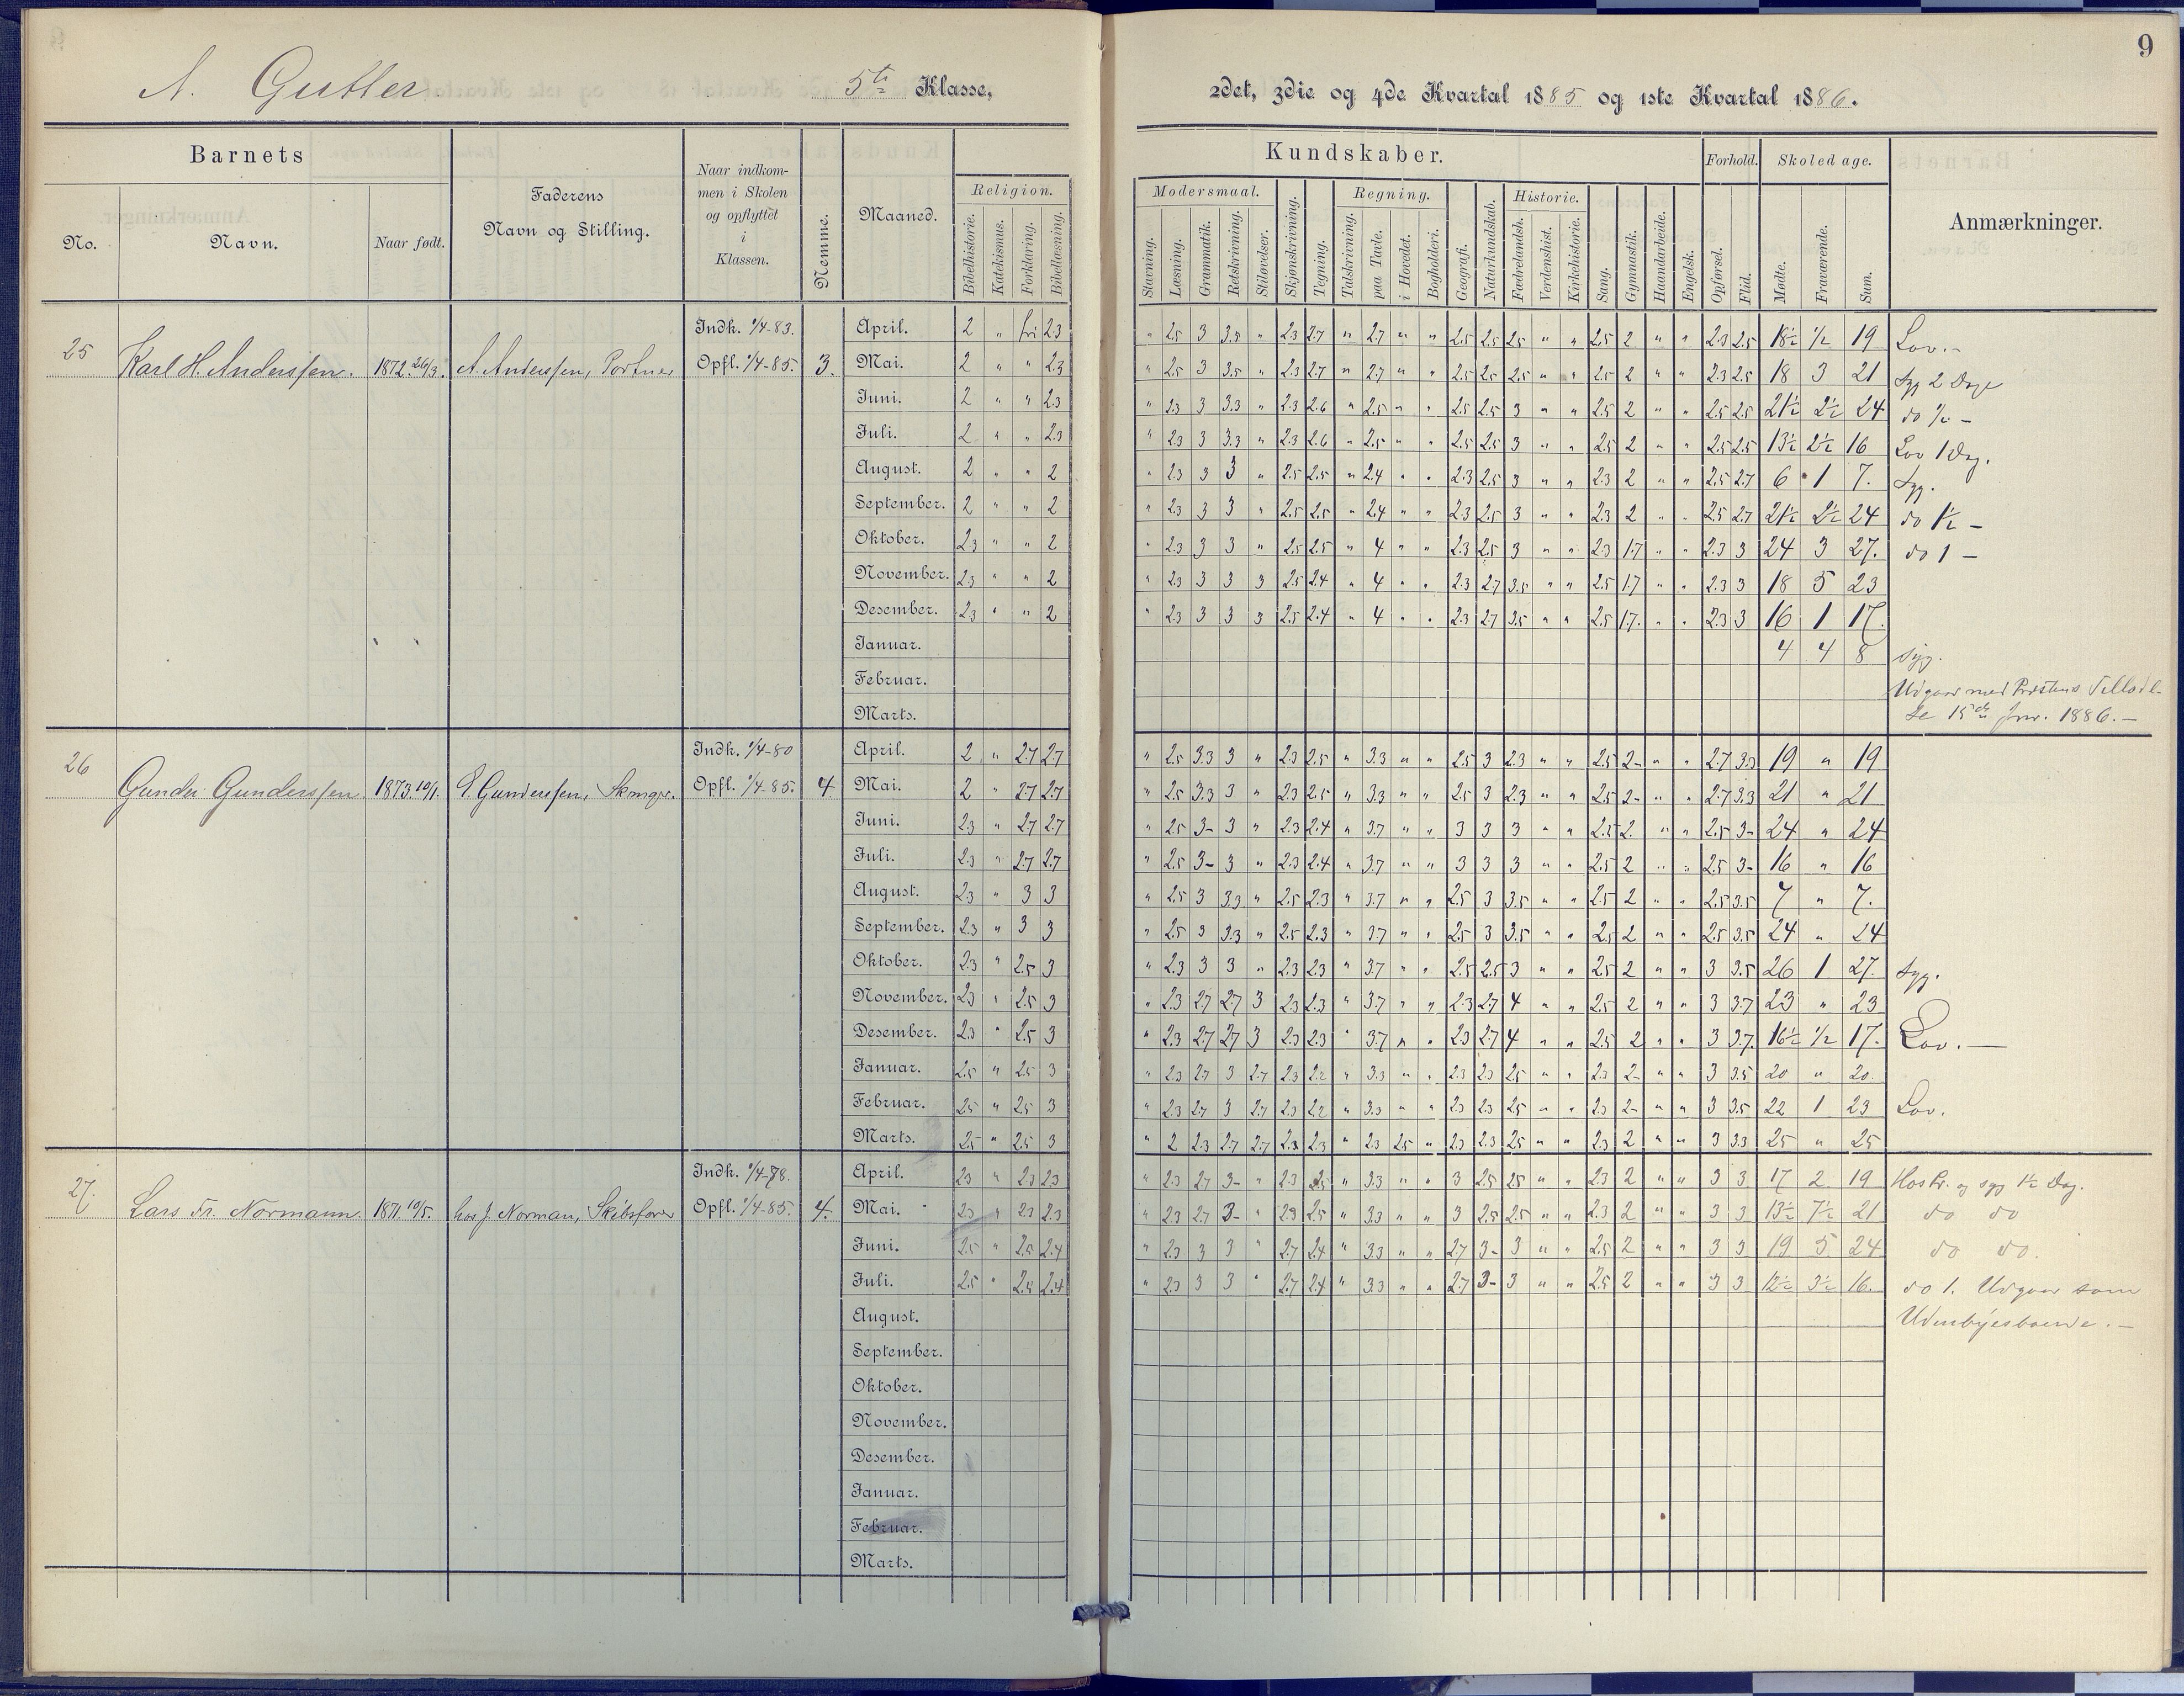 9
A. Gutter. 5te Klasse, 2det, 3die og 4de Kvartal 1885 og 1ste Kvartal 1886.
Barnets
No. Navn. Naar født.
Faderens
Navn og Stilling.
Naar indkom-
men i Skolen
og opflyttet
i
Klassen.
Nemme.
Maaned.
Kundskaber.
Religion.
Bibelhistorie. Katekismus. Forklaring. Bibellæsning.
Modersmaal.
Stavning. Læsning. Grammatik. Retskrivning. Stiløvelser.
Skjønskrivning. Tegning.
Regning.
Talskrivning. paa Tavle. i Hovedet. Bogholderi.
Geografi. Naturkundskab.
Historie.
Fædrelandsh. Verdenshist. Kirkehistorie.
Sang. Gymnastik. Haandarbeide. Engelsk.
Forhold.
Opførsel. Flid.
Skoledage.
Mødte. Fraværende. Sum.
Anmærkninger.
25 Karl H. Anderssen. 1872. 26/3. A. Anderssen, Portner Indk. 1/4-83. Opfl. 1/4-85. 3.
April. 2 " fri 2.3 " 2.5 3 3.5 " 2.3 2.7 " 2.7 " " 2.5 2.5 2.5 " " 2.5 2 " " 2.3 2.5 18½ ½ 19 Lov.-
Mai. 2 " " 2.3 " 2.5 3 3.5 " 2.3 2.7 " 2.7 " " 2.5 2.5 2.5 " " 2.5 2 " " 2.3 2.5 18 3 21 Syg 2 Dage
Juni. 2 " " 2.3 " 2.3 3 3.3 " 2.3 2.6 " 2.5 " " 2.5 2.5 3 " " 2.5 2 " " 2.5 2.5 21½ 2½ 24 do ½ -
Juli. 2 " " 2.3 " 2.3 3 3.3 " 2.3 2.6 " 2.5 " " 2.5 2.5 3 " " 2.5 2 " " 2.5 2.5 13½ 2½ 16 Lov 1 Dag.
August. 2 " " 2 " 2.3 3 3 " 2.5 2.5 " 2.4 " " 2.3 2.5 3 " " 2.3 2 " " 2.5 2.7 6 1 7. Syg.
September. 2 " " 2 " 2.3 3 3 " 2.5 2.5 " 2.4 " " 2.3 2.5 3 " " 2.3 2 " " 2.5 2.7 21½ 2½ 24 do 1½ -
Oktober. 2.3 " " 2 " 2.3 3 3 " 2.5 2.5 " 4 " " 2.3 2.5 3 " " 2.3 1.7 " " 2.3 3 24 3 27. do 1 -
November. 2.3 " " 2 " 2.3 3 3 3 2.5 2.4 " 4 " " 2.3 2.7 3.5 " " 2.5 1.7 " " 2.3 3 18 5 23
Desember. 2.3 " " 2 " 2.3 3 3 3 2.5 2.4 " 4 " " 2.3 2.7 3.5 " " 2.5 1.7. " " 2.3 3 16 1 17.
Januar. 4 4 8 Syg.
Februar. Udgaar med Præstens Tilladel-
Marts. se 15de Jnr. 1886.-
26 Gunder Gunderssen. 1873. 10/1. E. Gunderssen, Skmager. Indk. 1/4-80 Opfl. 1/4-85. 4.
April. 2 " 2.7 2.7 " 2.5 3.3 3 " 2.3 2.5 " 3.3 " " 2.5 3 2.3 " " 2.5 2- " " 2.7 3.3 19 " 19
Mai. 2 " 2.7 2.7 " 2.5 3.3 3 " 2.3 2.5 " 3.3 " " 2.5 3 2.3 " " 2.5 2- " " 2.7 3.3 21 " 21
Juni. 2.3 " 2.7 2.7 " 2.5 3- 3 " 2.3 2.4 " 3.7 " " 3 3 3 " " 2.5 2. " " 2.5 3- 24 " 24
Juli. 2.3 " 2.7 2.7 " 2.5 3- 3 " 2.3 2.4 " 3.7 " " 3 3 3 " " 2.5 2 " " 2.5 3- 16 " 16
August. 2.3 " 3 3 " 2.5 3 3.3 " 2.5 2.3 " 3.7 " " 2.5 3 3.5 " " 2.5 2 " " 2.5 3.5 7 " 7.
September. 2.3 " 3 3 " 2.5 3 3.3 " 2.5 2.3 " 3.7 " " 2.5 3 3.5 " " 2.5 2 " " 2.5 3.5 24 " 24
Oktober. 2.3 " 2.5 3 " 2.3 3 3 " 2.3 2.3 " 3.7 " " 2.5 2.5 3 " " 2.5 2 " " 3 3.5 26 1 27. Syg.
November. 2.3 " 2.5 3 " 2.3 2.7 2.7 3 2.3 2.3 " 3.7 " " 2.3 2.7 4 " " 2.5 2 " " 3 3.7 23 " 23
Desember. 2.3 " 2.5 3 " 2.3 2.7 2.7 3 2.3 2.3 " 3.7 " " 2.3 2.7 4 " " 2.5 2 " " 3 3.7. 16½ ½ 17. Lov.-
Januar. 2.5 " 2.5 3 " 2.3 2.7 3 2.7 2.3 2.2 " 3.3 " " 2.3 2.3 2.5 " " 2.3 2- " " 3 3.5 20 " 20.
Februar. 2.5 " 2.5 3 " 2.3 2.7 3 2.7 2.3 2.2 " 3.3 " " 2.3 2.3 2.5 " " 2.3 2- " " 3 3.5 22 1 23 Lov.
Marts. 2.5 " 2.5 3 " 2 2.3 2.7 2.7 2.3 2.3 " 2.3 2.5 " 2.3 2.3 2.5 " " 2.3 2 " " 3 3.3 25 " 25
27. Lars Fr. Normann. 1871. 10/5. hos J. Norman, Skibsfører Indk. 1/4-78. Opfl. 1/4-85. 4.
April. 2.3 " 2.3 2.3 " 2.3 2.7 3- " 2.3 2.5 " 3.3 " " 3 2.5 2.5 " " 2.3 2 " " 3 3 17 2 19 og syg 1½ Dag.
Mai. 2.3 " 2.3 2.3 " 2.3 2.7 3- " 2.3 2.5 " 3.3 " " 3 2.5 2.5 " " 2.3 2 " " 3 3 13½ 7½ 21 do do
Juni. 2.5 " 2.5 2.4 " 2.3 3 3 " 2.7 2.4 " 3.3 " " 2.7 3- 3 " " 2.5 2 " " 3 3 19 5 24 do do.
Juli. 2.5 " 2.5 2.4 " 2.3 3 3 " 2.7 2.4 " 3.3 " " 2.7 3- 3 " " 2.5 2 " " 3 3 12½ 3½ 16. do 1. Udgaar som
August. Udenbyesboende.-
September.
Oktober.
November.
Desember.
Januar.
Februar.
Marts.